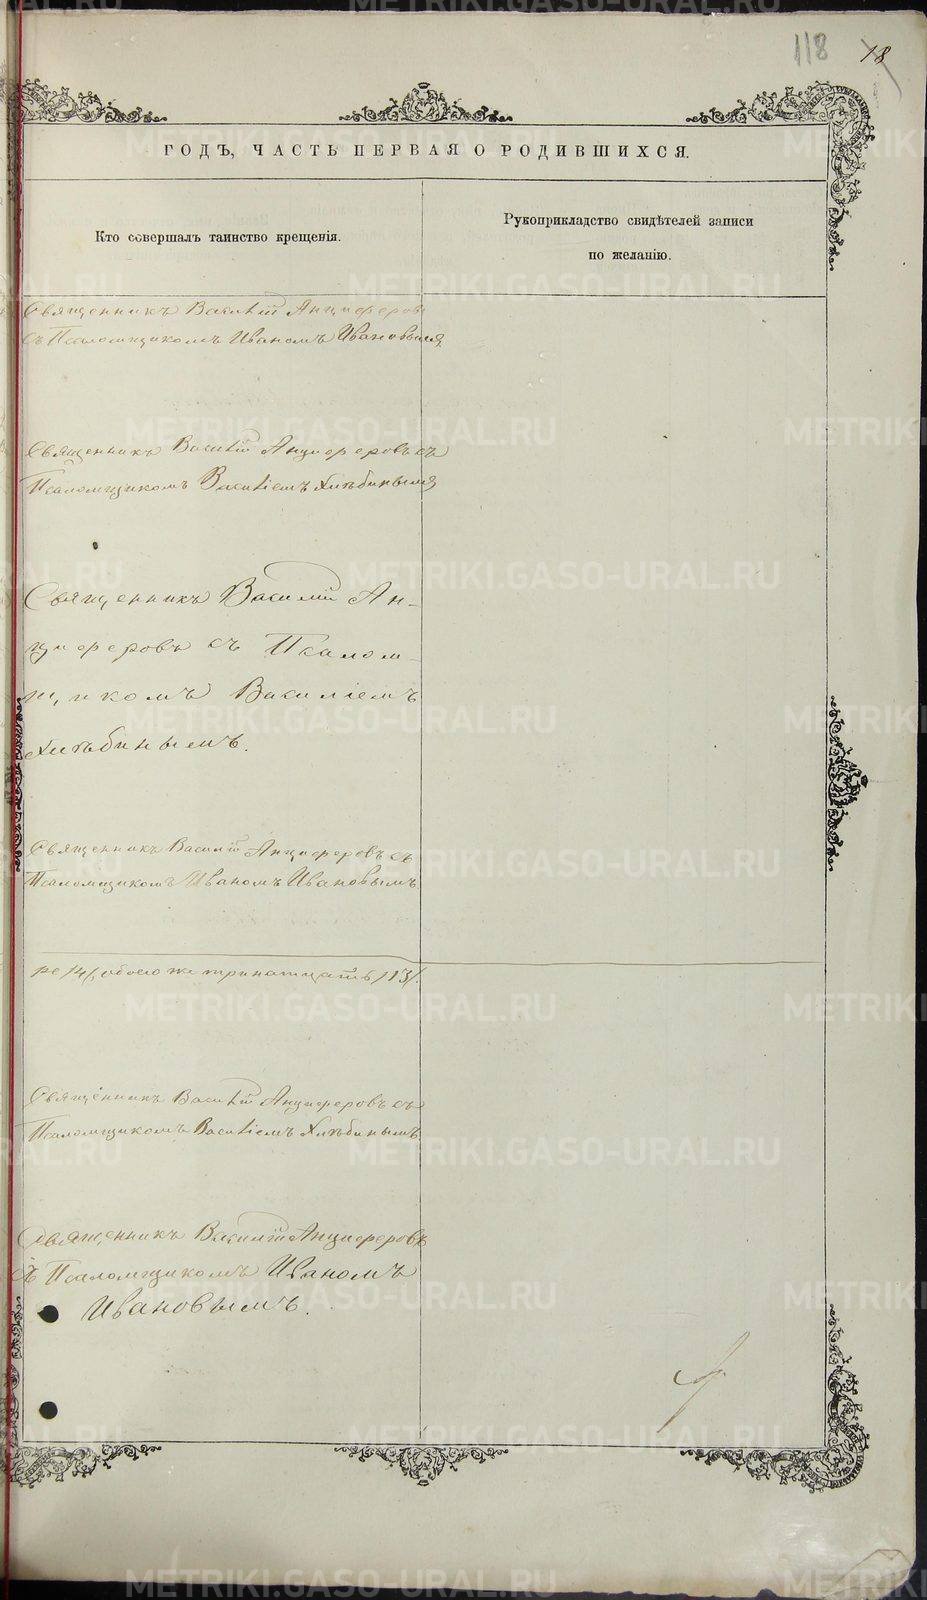 118 18
ГОДЪ, ЧАСТЬ ПЕРВАЯ О РОДИВШИХСЯ.
Кто совершалъ таинство крещенія.
Рукоприкладство свидѣтелей записи
по желанію.
Священникъ Василій Анциферовъ
съ Псаломщикомъ Иваномъ Ивановымъ
Священникъ Василій Анциферовъ съ
Псаломщикомъ Василіемъ Хлѣбинымъ
Священникъ Василій Ан-
циферовъ съ Псалом-
щикомъ Василіемъ
Хлѣбинымъ.
Священникъ Василій Анциферовъ съ
Псаломщикомъ Иваномъ Ивановымъ
ре /4/, обоего же тринатцать /13/.
Священникъ Василій Анциферовъ съ
Псаломщикомъ Василіемъ Хлѣбинымъ
Священникъ Василій Анциферовъ
съ Псаломщикомъ Иваномъ
Ивановымъ.
METRIKI.GASO-URAL.RU